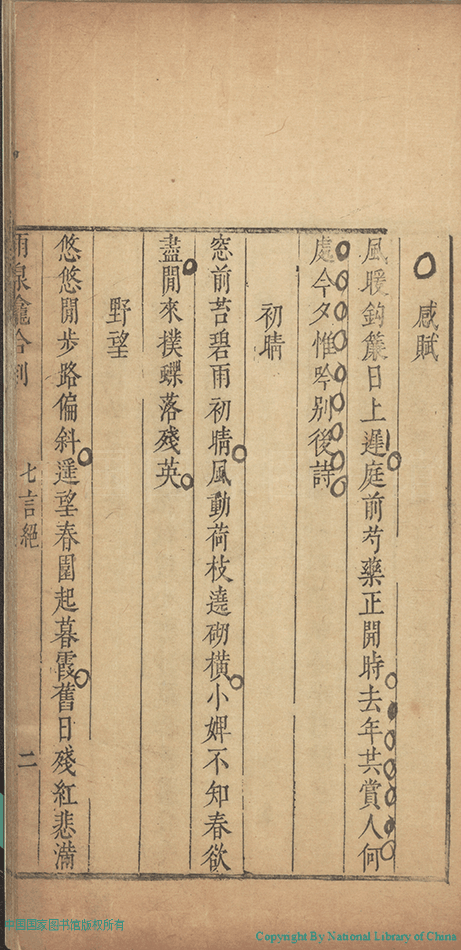 感賦
風暖鈎簾日上遲庭前芍藥正開時去年共賞人何
處今夕惟吟别後詩
初晴
窓前苔碧雨初晴風動荷枝遶砌橫小婢不知春欲
盡閒來撲蝶落殘英
野望
悠悠閒步路偏斜遥望春園起暮霞舊日殘紅悲滿
雨泉龕合刻 七言絕 二
中国国家图书馆版权所有
Copyright By National Library of China